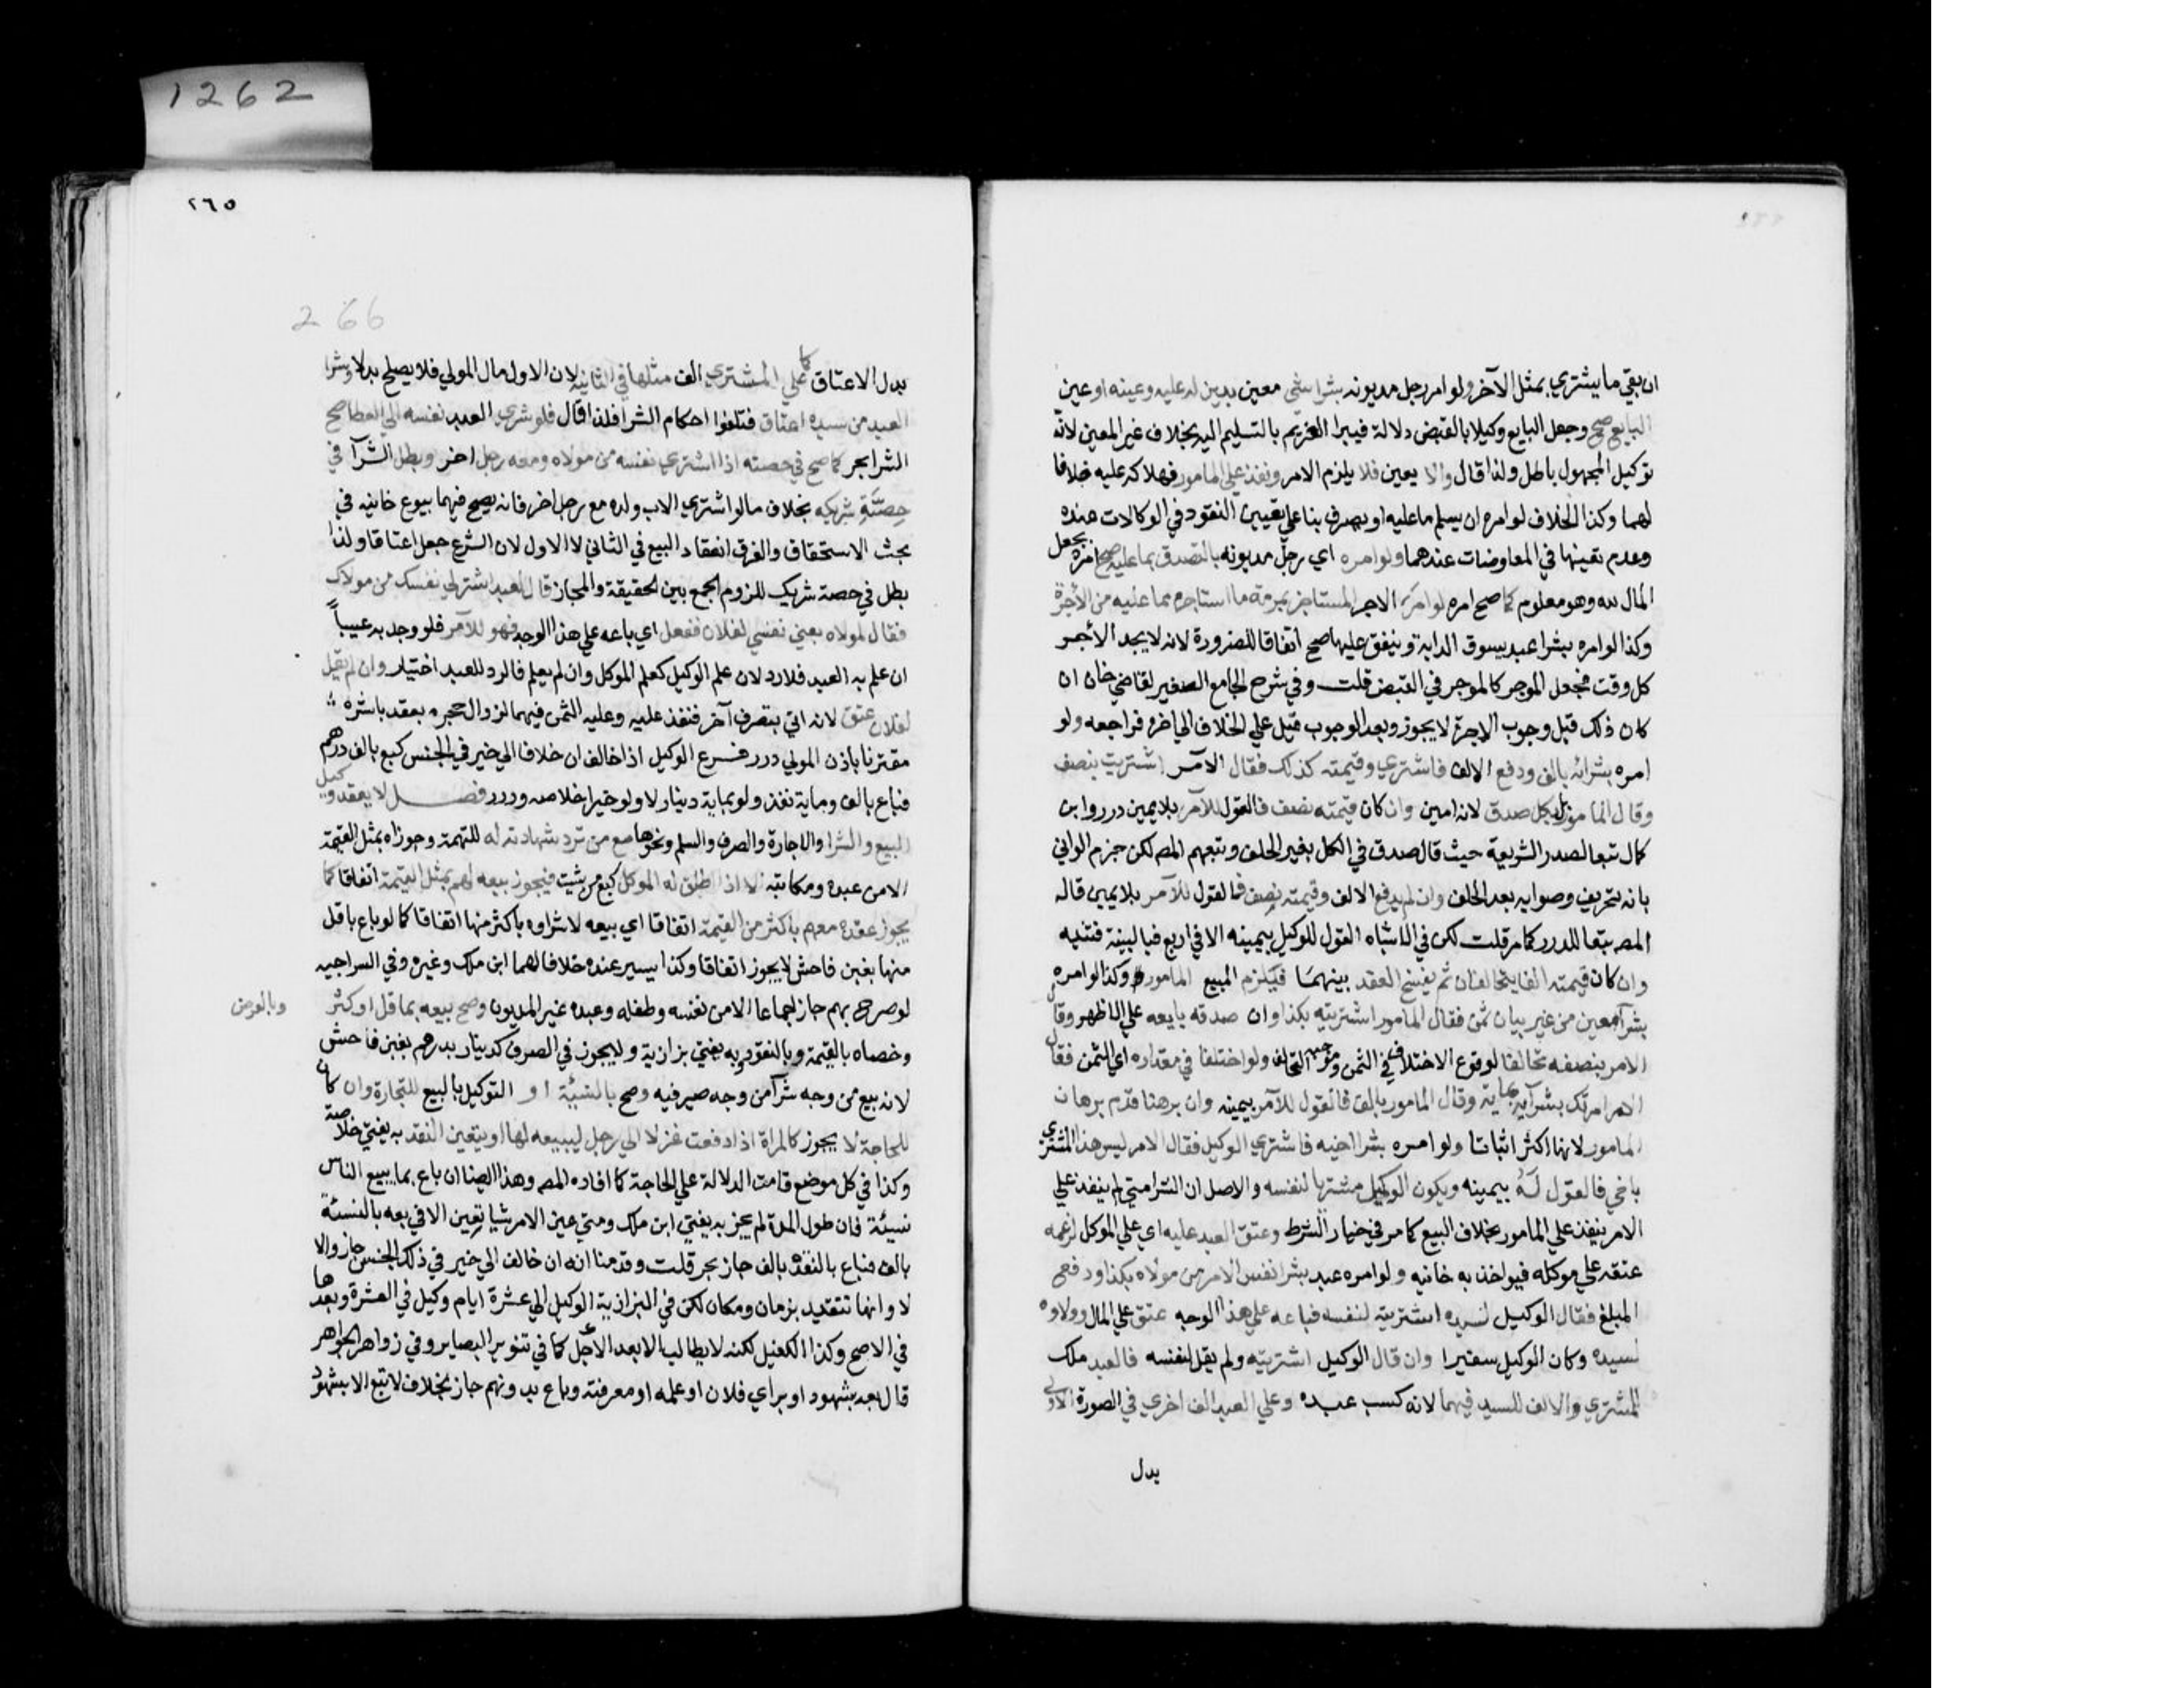 ان بقي ما يشتري بمثل الآخر ولو امر رجل مديونه بشرا شي معين بدين له عليه وعينه او عين
البايع صح وجعل البايع وكيلا بالقبض دلالة فيبرا الغريم بالتسليم اليه بخلاف غير المعين لانه
توكيل المجهول باطل ولذا قال والا يعين فلا يلزم الامر ونفذ علي المامور فهلاكه عليه خلافا
لهما وكذا الخلاف لو امره ان يسلم ما عليه او يصرف بنا علي تعيين النقود في الوكالات عنده
وعدم تعينها في المعاوضات عندهما ولو امره اي رجل مديونه بالتصدق بما عليه صح امره بجعل
المال لله وهو معلوم كما صح امره لو امر الاجر المستاجر بمرمة ما استاجره مما عليه من الأجرة
وكذا لو امره بشرا عبد يسوق الدابة وينفق عليها صح اتفاقا للضرورة لانه لا يجد الأجر
كل وقت فجعل الموجر كالموجر في القبض قلت وفي شرح الجامع الصغير لقاضي خان ان
كان ذلك قبل وجوب الاجرة لا يجوز وبعد الوجوب قيل علي الخلاف الي اخره فراجعه ولو
امره بشرائه بالف ودفع الالف فاشتري وقيمته كذلك فقال الآمر اشتريت بنصف
وقال المامور بل بكل صدق لانه امين وان كان قيمته نصف فالقول للآمر بلا يمين درر وابن
كمال تبعا لصدر الشريعة حيث قال صدق في الكل بغير الحلف وتبعهم المصه لكن جزم الواني
بانه تحريف وصوابه بعد الحلف وان لم يدفع الالف وقيمته نصف فالقول للآمر بلا يمين قاله
المصه تبعا للدرر كما مر قلت لكن في الاشباه القول للوكيل بيمينه الا في اربع فبالبينة فتنبه
وان كان قيمته الفا يتحالفان ثم يفسخ العقد بينهمَا فيلزم المبيع المامور وكذا لو امره
بشرآ معين من غير بيان ثمن فقال المامور اشتريته بكذا وان صدقه بايعه علي الاظهر وقال
الامر بنصفه تحالفا لوقوع الاختلاف في الثمن وموجبه التحالف ولو اختلفا في مقداره اي الثمن فقال
الامر امرتك بشرآيه بماية وقال المامور بالف فالقول للآمر بيمينه وان برهنا قدّم برهان
المامور لانها اكثر اثباتا ولو امره بشرا اخيه فاشتري الوكيل فقال الامر ليس هذا المشتري
باخي فالقول لَهُ بيمينه ويكون الوكيل مشتريا لنفسه والاصل ان الشرا متي لم ينفذ علي
الامر ينفذ علي المامور بخلاف البيع كما مر في خيار الشرط وعتق العبد عليه اي علي الموكل لزعمه
عتقه علي موكله فيواخذ به خانيه ولو امره عبد بشرا نفس الامر من مولاه بكذا ودفع
المبلغ فقال الوكيل لسيده اشتريته لنفسه فباعه علي هذا الوجه عتق علي المال وولاوه
لسيده وكان الوكيل سفيرا وان قال الوكيل اشتريته ولم يقل لنفسه فالعبد ملك
المشتري والالف للسيد فيهما لانه كسب عبده وعلي العبد الف اخري في الصورة الاولي
بدل
٢٦٥
1262
266
بدل الاعتاق كما علي المشتري الف مثلها في الثانية لان الاول مال المولي فلا يصلح بدلا وشرا
العبد من سيده اعتاق فتلغوا احكام الشرا فلذا قال فلو شري العبد نفسه الي العطا صح
الشرا بحر كما صح في حصته اذا اشتري نفسه من مولاه ومعه رجل اخر وبطل الشرآ في
حِصَّةِ شريكه بخلاف مالو اشتري الاب ولده مع رجل اخر فانه يصح فيهما بيوع خانيه في
بحث الاستحقاق والفرق انعقاد البيع في الثاني لا الاول لان الشرع جعل اعتاقا ولذا
بطل في حصة شريك للزوم الجمع بين الحقيقة والمجاز قال لعبد اشتر لي نفسك من مولاك
فقال لمولاه بعني نفسي لفلان ففعل اي باعه علي هذا الوجه فهو للآمر فلو وجد به عيباً
ان علم به العبد فلا رد لان علم الوكيل كعلم الموكل وان لم يعلم فالرد للعبد اختيار وان لم يقل
لفلان عتق لانه اتي بتصرف آخر فنفذ عليه وعليه الثمن فيهما لزوال حجره بعقد باشره
مقترنا باذن المولي درر فرع الوكيل اذا خالف ان خلافا الي خير في الجنس كبع بالف درهم
فباع بالف وماية نفذ ولو بماية دينار لا ولو خيرا خلاصه ودرر فصل لا يعقد وكيل
البيع والشرا والاجارة والصرف والسلم ونحوها مع من ترد شهادته له للتهمة وجوزاه بمثل القيمة
الا من عبده ومكاتبه الا اذا اطلق له الموكل كبع ممن شيت فيجوز بيعه لهم بمثل القيمة اتفاقا كما
يجوز عقده معهم باكثر من القيمة اتفاقا اي بيعه لا شراوه باكثر منها اتفاقا كما لو باع باقل
منها بغبن فاحش لا يجوز اتفاقا وكذا بيسير عنده خلافا لهما ابن ملك وغيره وفي السراجيه
لو صرح بهم جاز اجماعا الا من نفسه وطفله وعبده غير المديون وصح بيعه بما قل او كثر
وبالعرض
وخصاه بالقيمة وبالنقود وبه يفتي بزازية ولا يجوز في الصرف كدينار بدرهم بغبن فاحش
لانه بيع من وجه شرآ من وجه صيرفيه وصح بالنسيئة او التوكيل بالبيع للتجارة وان كان
للحاجة لا يجوز كالمراة اذا دفعت غزلا الي رجل ليبيعه لها اويتعين النقد به يفتي خلاصة
وكذا في كل موضع قامت الدلالة علي الحاجة كما افاده المصه وهذا ايضا ان باع بما يبيع الناس
نسيئة فان طول المدة لم يجز به يفتي ابن ملك ومتي عين الامر شيا تعين الا في بعه بالنسئة
بالف فباع بالنقد بالف جاز بحر قلت وقدمنا انه ان خالف الي خير في ذلك الجنس جاز والا
لا وانها تتقيد بزمان ومكان لكن في البزازية الوكيل الي عشرة ايام وكيل في العشرة وبعدها
في الاصح وكذا الكفيل لكنه لا يطالب الا بعد الاجل كما في تنوير البصاير وفي زواهر الجواهر
قال بعه بشهود او براي فلان او علمه او معرفته وباع بدونهم جاز بخلاف لا تبع الا بشهود